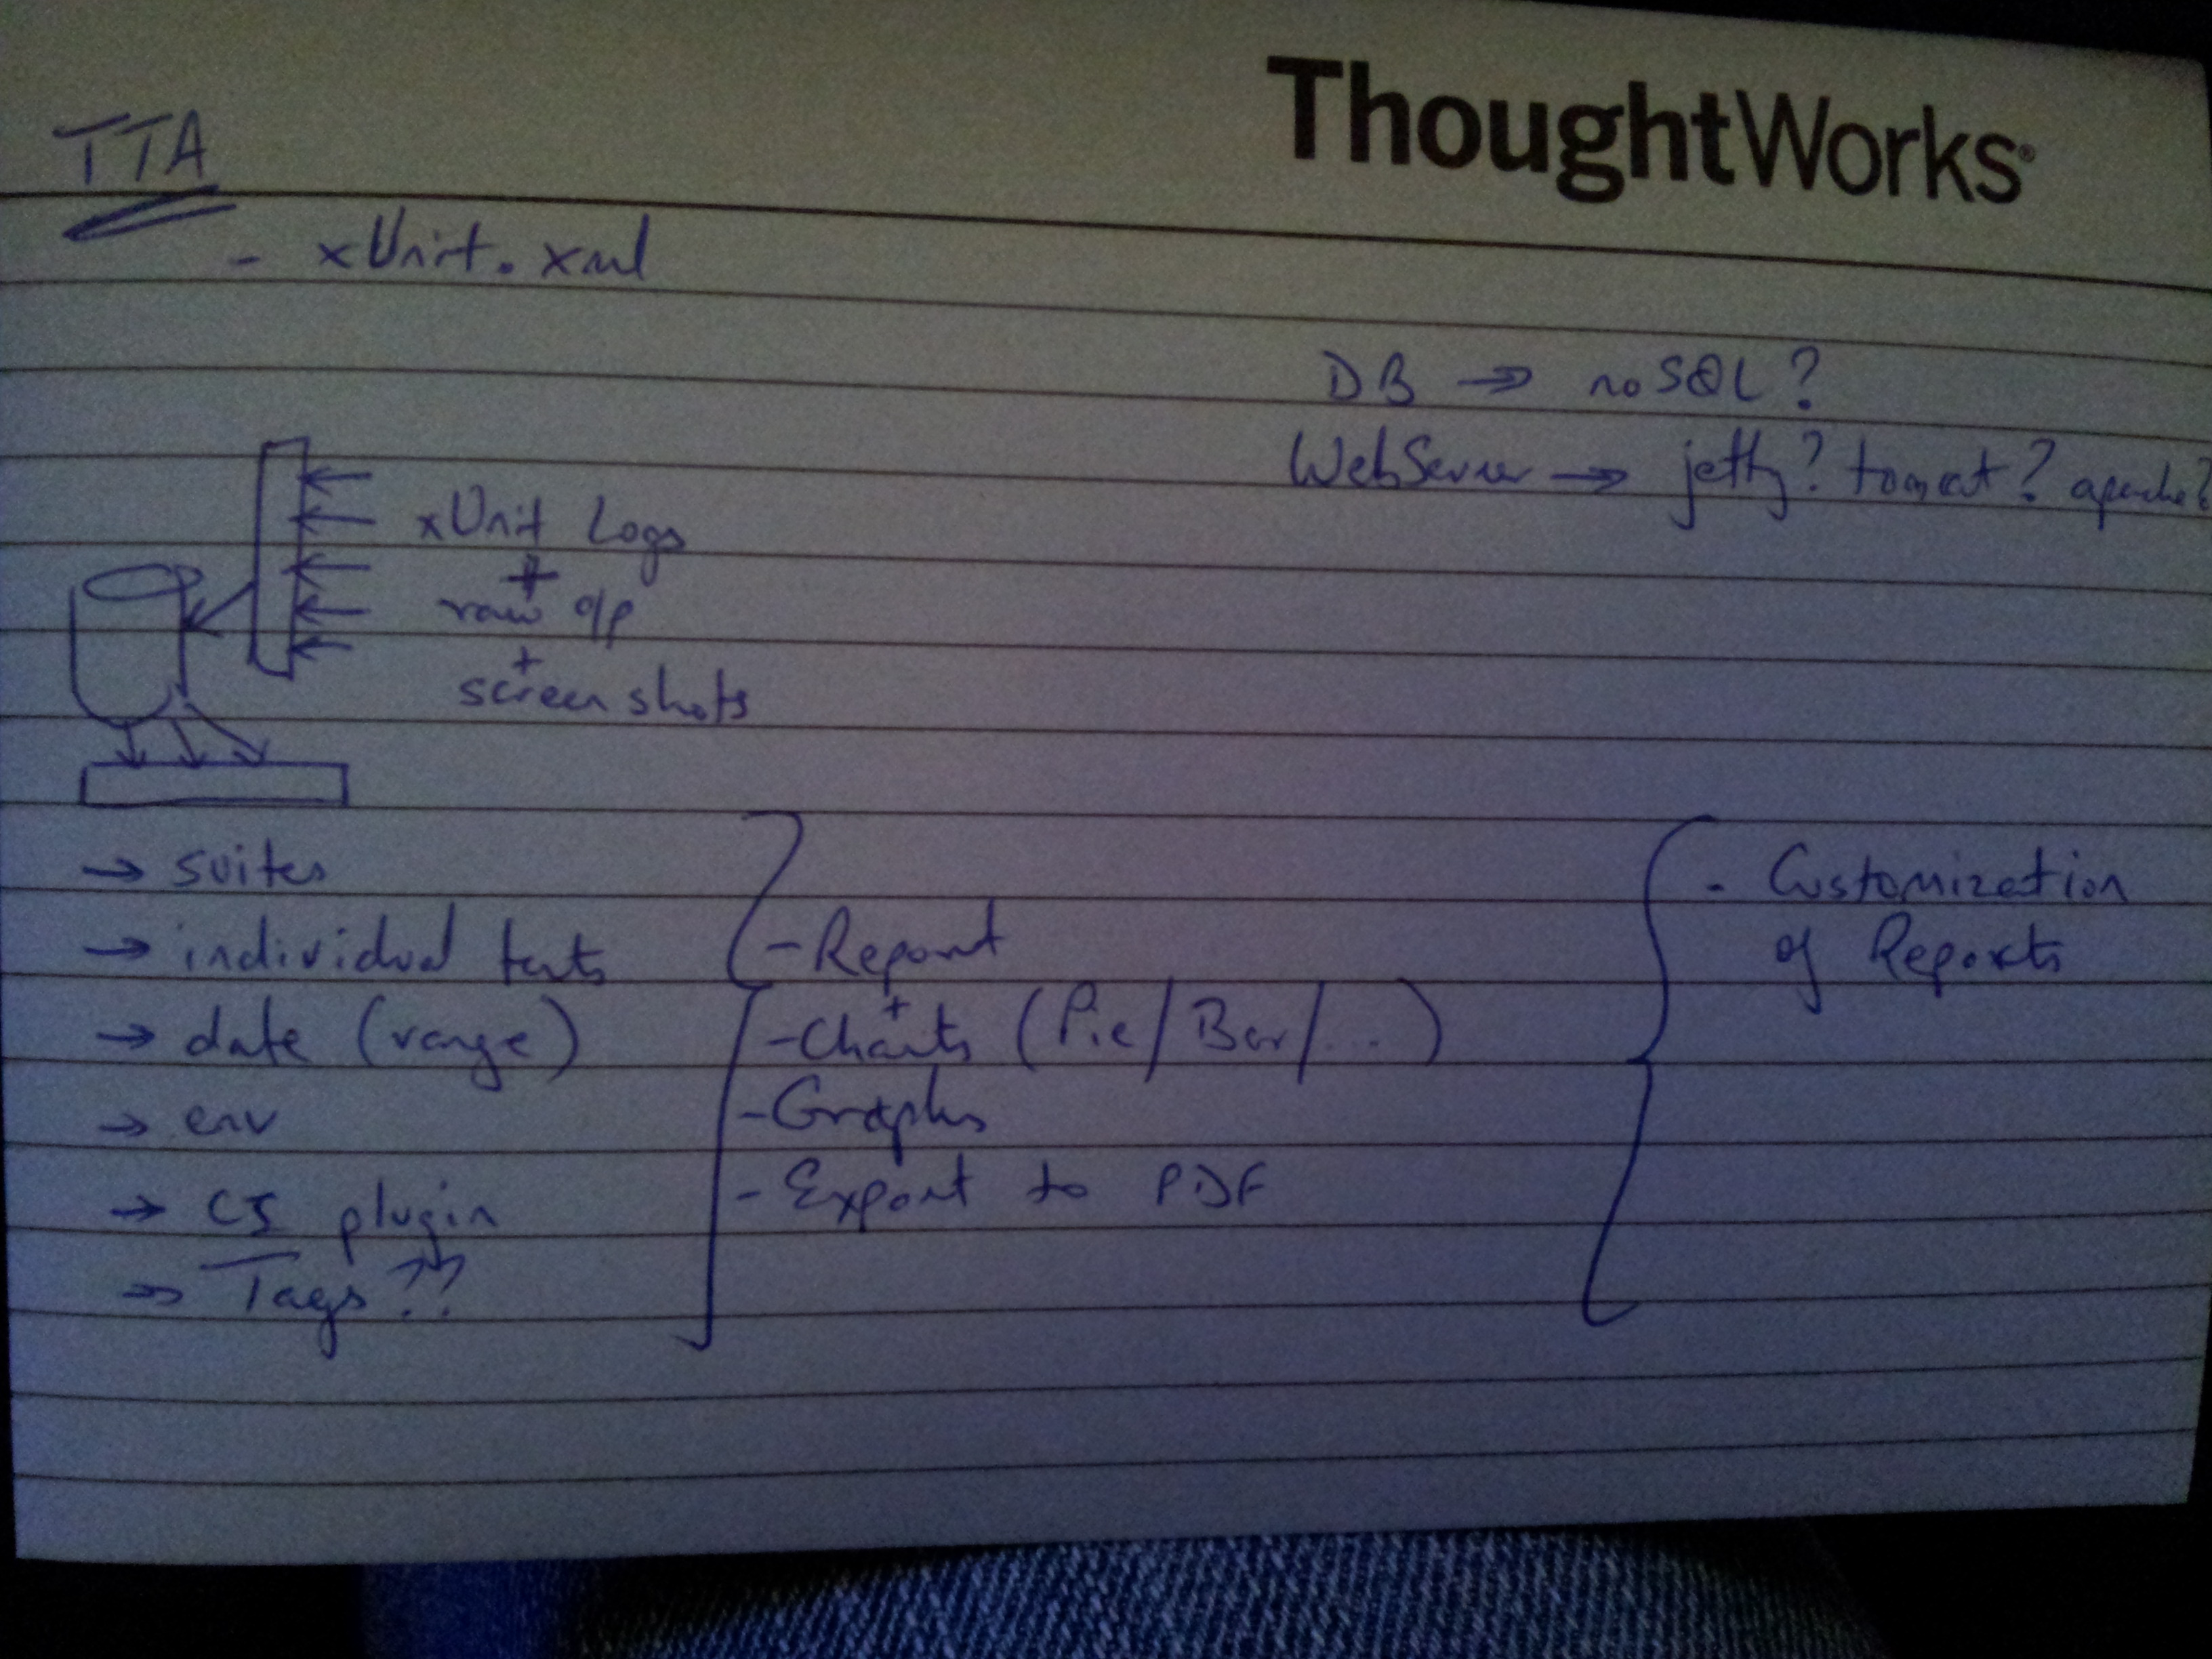 ThoughtWorks®
TTA
- xUnit.xml
DB → noSQL?
WebServer → jetty? tomcat? apache?
xUnit Logs
+
raw o/p
+
screen shots
→ suites
→ individual tests
→ date (range)
→ env
→ CI plugin
→ Tags??
- Report
+
- Charts (Pie/Bar/...)
- Graphs
- Export to PDF
- Customization
of Reports